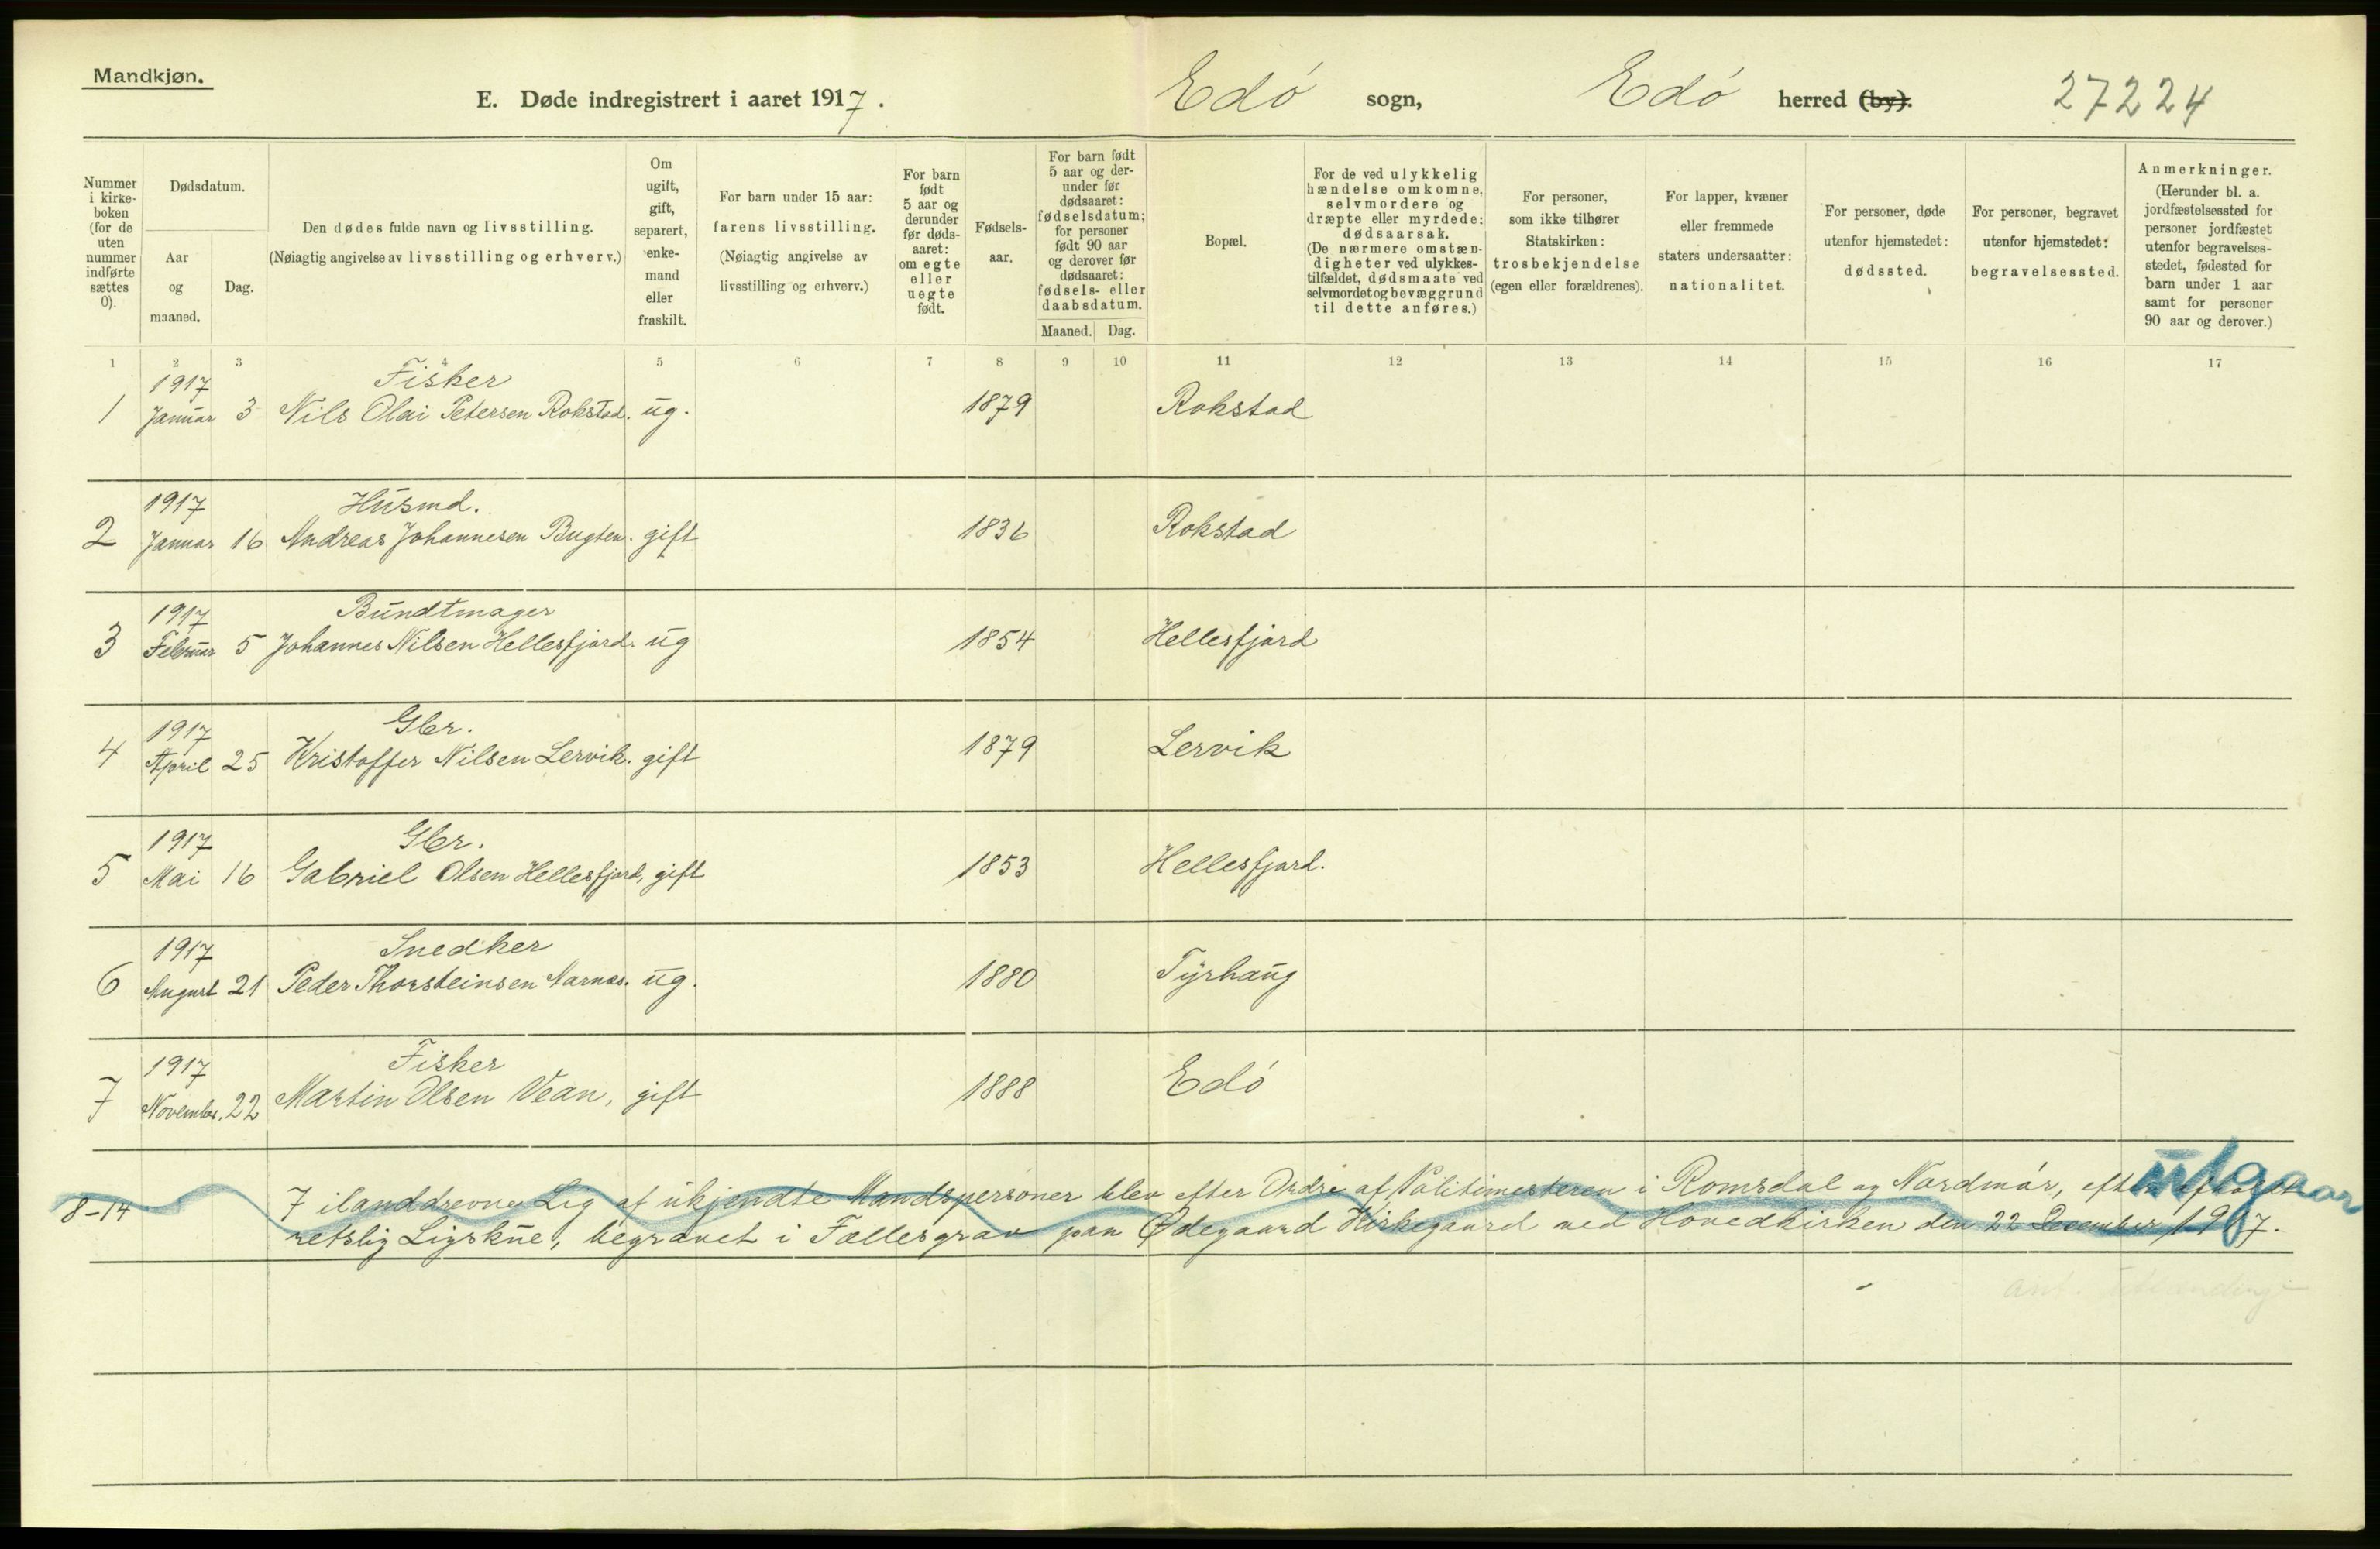 Mandkjøn.
E. Døde indregistrert i aaret 1917.
Edö sogn,
Edö herred (by).
27224
Nummer
i kirke-
boken
(for de
uten
nummer
indførte
sættes
0).
Dødsdatum.
Aar
og
maaned.
Dag.
Den dødes fulde navn og livsstilling.
(Nøiagtig angivelse av livsstilling og erhverv.)
Om
ugift,
gift,
separert,
enke-
mand
eller
fraskilt.
For barn under 15 aar:
farens livsstilling.
(Nøiagtig angivelse av
livsstilling og erhverv.)
For barn
født
5 aar og
derunder
før døds-
aaret:
om egte
eller
uegte
født.
Fødsels-
aar.
For barn født
5 aar og der-
under før
dødsaaret:
fødselsdatum;
for personer
født 90 aar
og derover før
dødsaaret:
fødsels- eller
daabsdatum.
Maaned. Dag.
Bopæl.
For de ved ulykkelig
hændelse omkomne,
selvmordere og
dræpte eller myrdede:
dødsaarsak.
(De nærmere omstæn-
digheter ved ulykkes-
tilfældet, dødsmaate ved
selvmordet og bevæggrund
til dette anføres.)
For personer,
som ikke tilhører
Statskirken:
trosbekjendelse
(egen eller forældrenes).
For lapper, kvæner
eller fremmede
staters undersaatter:
nationalitet.
For personer, døde
utenfor hjemstedet:
dødssted.
For personer, begravet
utenfor hjemstedet:
begravelsessted.
Anmerkninger.
(Herunder bl. a.
jordfæstelsessted for
personer jordfæstet
utenfor begravelses-
stedet, fødested for
barn under 1 aar
samt for personer
90 aar og derover.)
1 2 3 4 5 6 7 8 9 10 11 12 13 14 15 16 17
1917 Fisker
1 Januar 3 Nils Olai Petersen Rokstad. ug. 1879 Rokstad
1917 Husmd.
2 Januar 16 Andreas Johannesen Bugten. gift 1836 Rokstad
1917 Bundtmager
3 Februar 5 Johannes Nilsen Hellesfjord. ug 1854 Hellesfjord
1917 Gbr.
4 April 25 Kristoffer Nilsen Lervik. gift 1879 Lervik
1917 Gbr.
5 Mai 16 Gabriel Olsen Hellesfjord, gift 1853 Hellesfjord.
1917 Snedker
6 August 21 Peder Thorsteinsen Aarnes. ug. 1880 Tyrhaug
1917 Fisker
7 November. 22 Martin Olsen Vean, gift 1888 Edö
utgaar
8-14 7 ilanddrevne Lig af ukjendte Mandspersoner blev efter Ordre af Politimesteren i Romsdal og Nordmör, efter
retslig Ligskue, begravet i Fællesgrav paa Ødegaard Kirkegaard ved Hovedkirken den 22 December 1917.
ant.